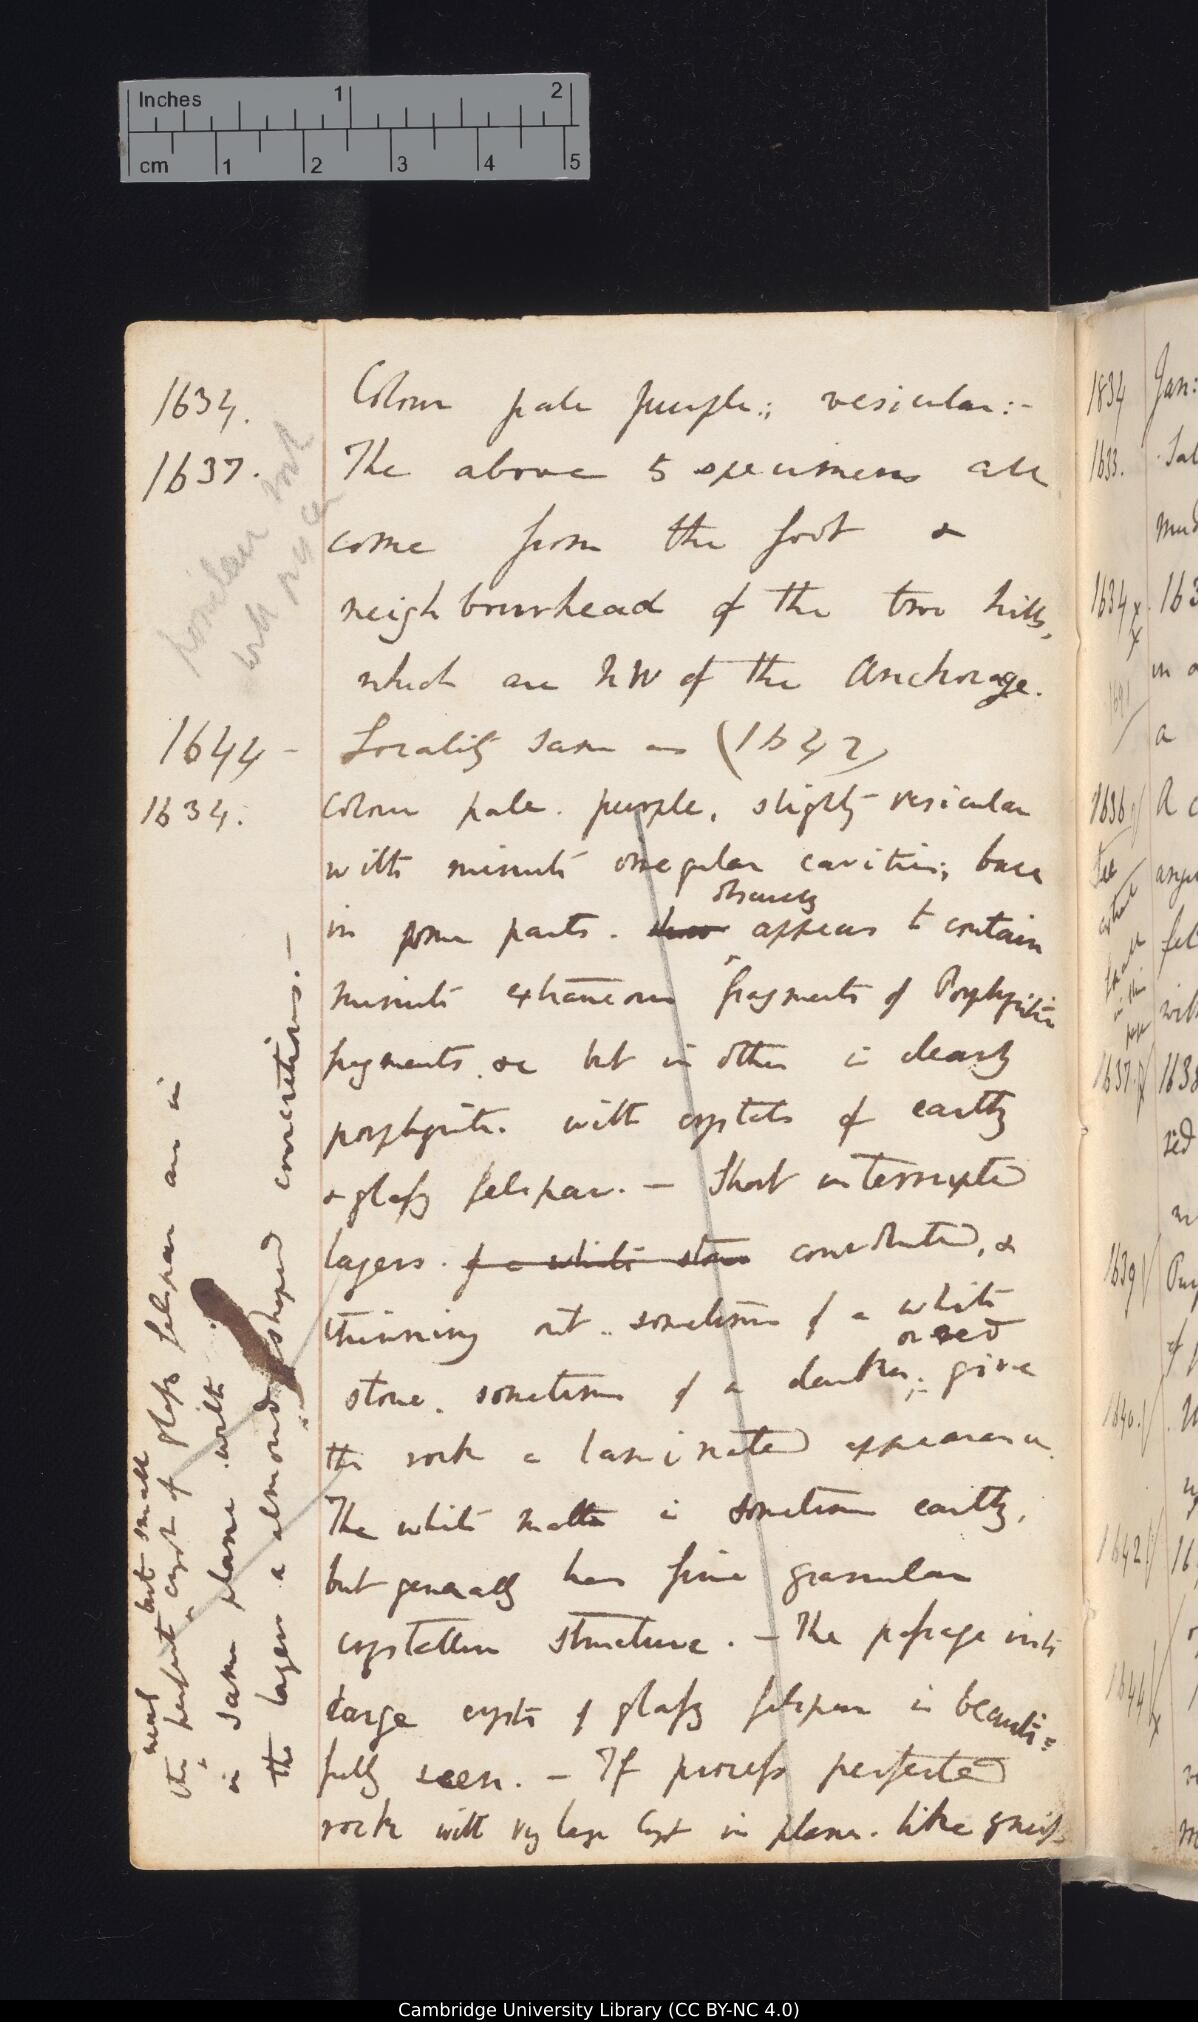 Inches 1 2
cm 1 2 3 4 5
1634. Colour pale purple; vesicular:-
1637. The above 5 specimens all
come from the foot &
neighbourhead of the two hills,
which are NW of the Anchorage.
1644 - Locality same as (1642)
1634. Colour pale purple, slightly vesicular
with minute irregular cavities; base
obscurely
in some parts appears to contain
minute extraneous fragments of Porphyritic
fragments &c but in other is clearly
porphyritic with crystals of earthy
& glassy felspar. - Short interrupted
layers. of a white stone convoluted, &
thinning out.. sometimes of a white
or red
stone, sometimes of a darker; give
the rock a laminated appearance
The white matter is sometimes earthy,
but generally has fine granular
crystalline structure. - The passage into
large crysts of glassy felspar is beauti=
fully seen. - If process perfected
rock with very large cryst in planes. like gneiss
neat but small
the perfect cryst of glassy felspar are in
in same plane with
the layers a almond shaped concretions. -
1834 Jan:
1633.
1634 163
in
a
1636
See
1637 1638
red
1639
of
1640
1642
1644
Cambridge University Library (CC BY-NC 4.0)